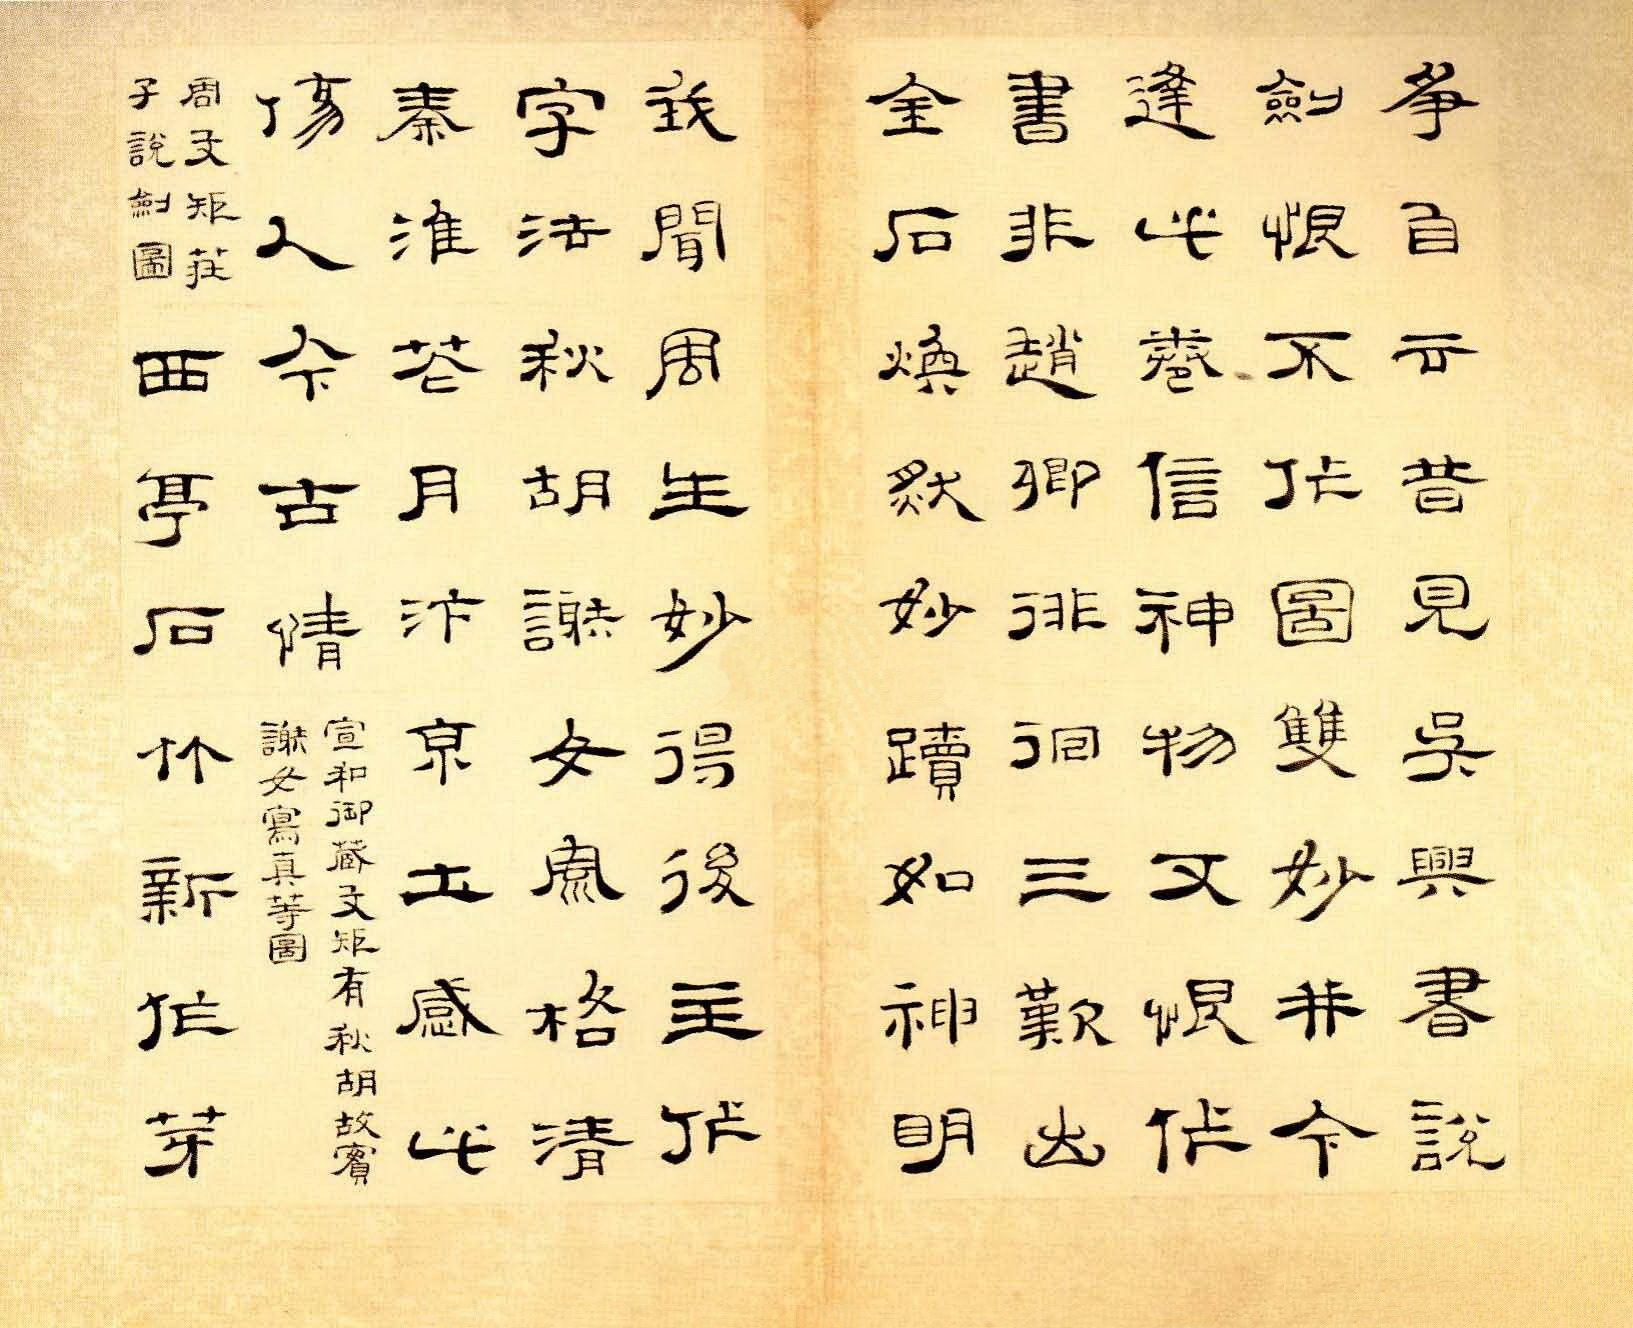 爭自云昔見吳興書說
劍恨不作圖雙妙并今
逢此卷信神物又恨作
書非趙卿徘徊三歎出
全石煥然妙蹟如神明
我聞周生妙得後主作
字法秋胡謝女風格清
秦淮花月汴京土感此
傷人今古情
宣和御藏文矩有秋胡故實
謝女寫真等圖
周文矩莊
子說劍圖
西亭石竹新作芽